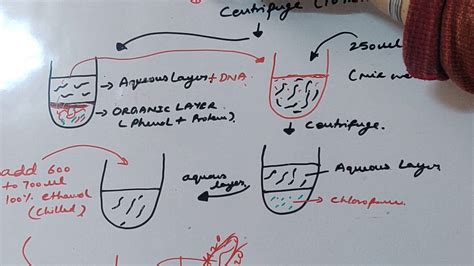 Centrifuge
250ul
Aqueous Layer + DNA
ORGANIC LAYER
(Phenol + Protein).
Centrifuge.
add 600
to 700ul
100% ethanol
(Chilled)
aqueous
layer
Aqueous Layer